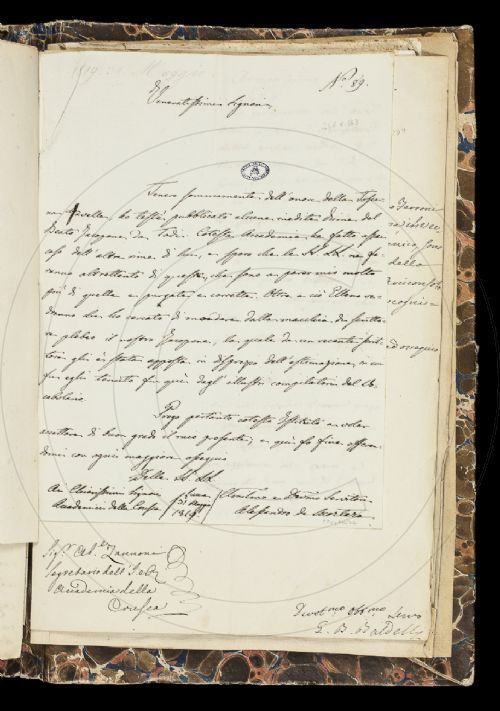 N.° 89.
Veneratissimi Signori
Tenero sommamente dell'onore della Tosca-
na favella, ho testè pubblicato alcune inedite rime del
Beato Jacopone da Todi. Cotesta Accademia ha fatto
caso dell'altre rime di lui, e spero che le SS. LL. ne fa-
ranno altrettanto di queste, che sono a parer mio molto
più di quelle e purgate, e corrette. Oltre a ciò Elleno ve-
dranno che ho cercato di mondare dalla macchia di scritto-
re plebeo il nostro Jacopone, la quale da un recente
gli è stata apposta in dispregio dell'estimazione, in cui
fu egli tenuto fin quì dagl'illustri compilatori del Vo-
cabolario.
Prego pertanto coteste a voler
accettare di buon grado il mio presente, e quì fo fine
domi con ogni maggiore ossequio
Delle SS. LL.
Ai Chiarissimi Signori
Accademici della Crusca
Lucca
31 Maggio
1819
e Devmo Servitore
Alessandro de Mortara
Sig.r Ab.e Zannoni
Segretario dell'I. e R.
Accademia della
Crusca
Devot.mo obb.mo Servo
G. B. Baldelli